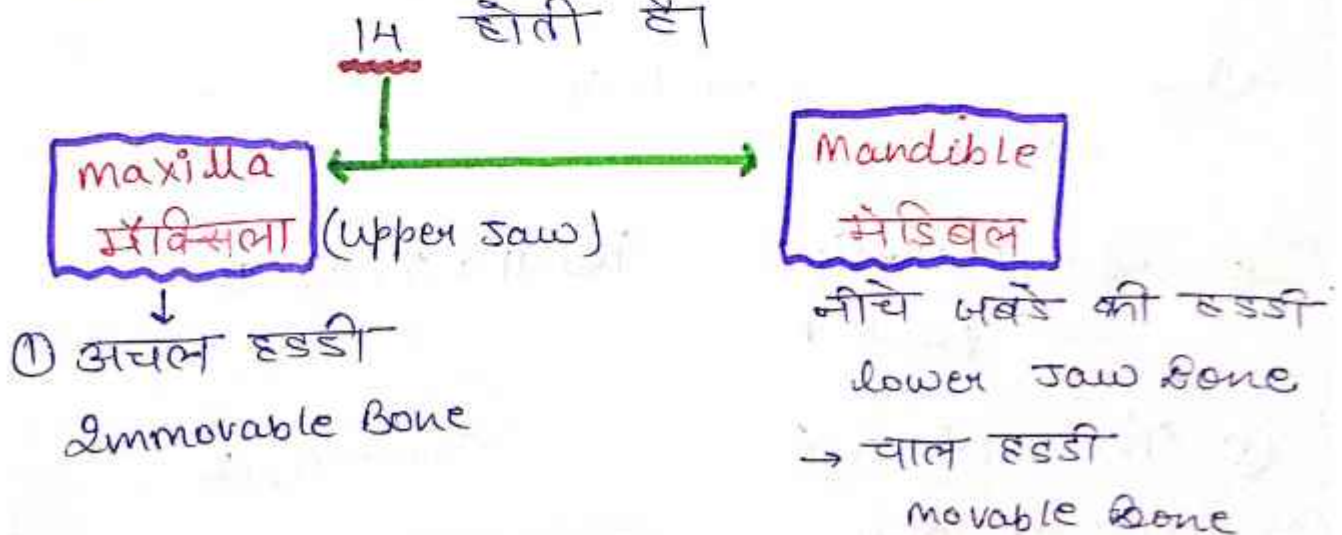 14 होती है।
maxilla
मैक्सिला (upper Jaw)
① अचल हडडी
Immovable Bone
Mandible
मेंडिबल
नीचे जबडे की हडडी
lower Jaw Bone
→ चाल हडडी
movable Bone